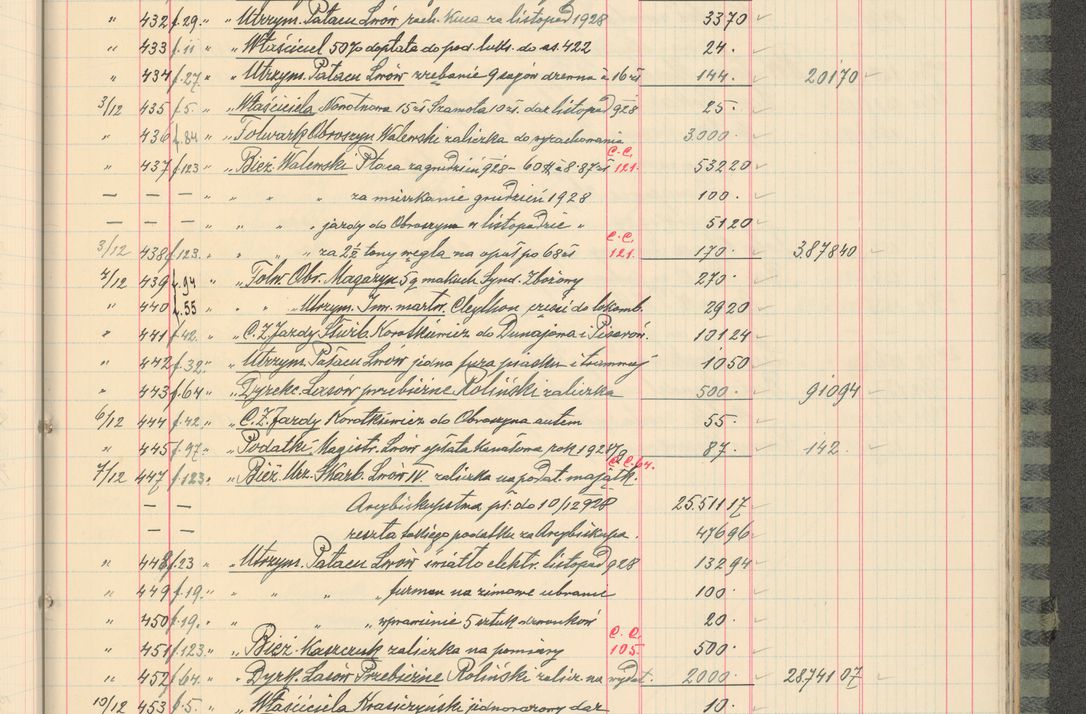 " 432 f.29. " " Utrzym. Pałacu Lwów rach. Kuca za listopad 1928 3370
" 433 f.11 " " Właściciel 50% dopłata do pod. luks. do as. 422 24.
" 434 f.27. " " Utrzym. Pałacu Lwów zrebanie 9 sągów drzewa à 16 zł 144. 20170
3/12 435 f.5. " " Właściciela Nowotnowa 15 zł. Szamota 10 zł. dar listopad 928 25.
" 436 f.84 " " Folwark Obroszyn Walewski zaliczka do wyrachowania 3.000.
C.C.
" 437 f.123 " " Bież. Walewski Płaca za grudzień 928 - 60 à 8.87 zł 121. 53220
— — " " " " za mieszkanie grudzień 1928 100.
— — " " " " jazdy do Obroszyna w listopadzie " 5120
C.C.
3/12 438 f.123. " " " " za 2½ tony węgla na opał po 68 zł 121. 170. 3.87840
4/12 439 f.94 " " Folw. Obr. Magazyn 5 q makuch Synd. Zbożowy 270.
" 440 f.55 " " " Utrzym. Inw. martw. Clayton części do lokomb. 2920
" 441 f.42. " " C.Z. Jazdy Służb. Korotkiewicz do Dunajowa i Pisarów. 10124
" 442 f.32. " " Utrzym. Pałacu Lwów jedna fura piasku i 1050
" 443 f.64 " " Dyrekc. Lasów przebieżne Roliński zaliczka 500. 91094
6/12 444 f.42. " " C.Z. Jazdy Korotkiewicz do Obroszyna autem 55.
" 445 f.97. " " Podatki, Magistr. Lwów opłata kanałowa rok 1927/8 87. 142.
C.C. 64.
7/12 447 f.123. " " Bież. Urz. Skarb. Lwów IV. zaliczka na podat. majątk.
— — Arcybiskupstwa pł. do 10/12 928 25.51117
— — reszta takiego podatku za Arcybiskupa. 47696
" 448 f.23 " " Utrzym. Pałacu Lwów światło elektr. listopad 928 13294
" 449 f.19. " " " " furman na zimowe ubranie 100.
" 450 f.19. " " wprawienie 5 sztuk dzwonków 20.
C.C.
" 451 f.123. " " Bież. Kaszczuk zaliczka na pomiary 105. 500.
" 452 f.64. " " Dyrk. Lasów Przebieżne Roliński zalicz. na wydat. 2000. 28.74107
10/12 453 f.5. " " Właściciela Krasiczyński jednorazowy dar 10.